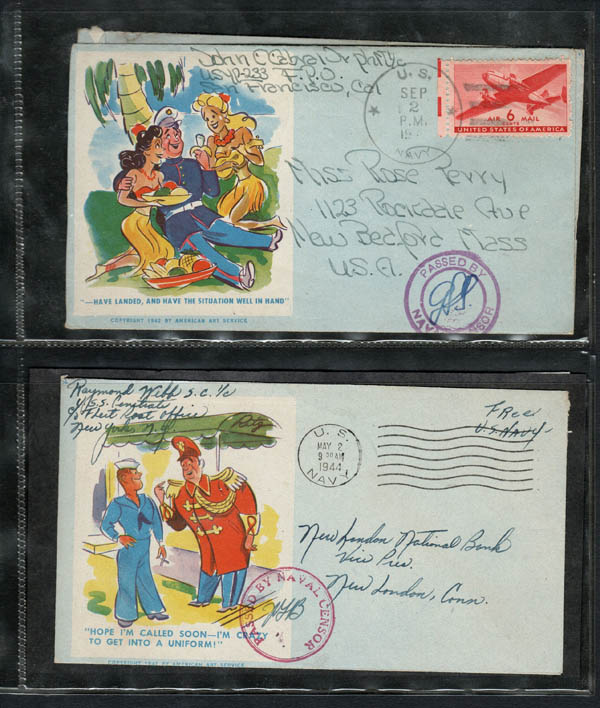 John C Cabral Jr phM1/c
US YP-233 F.P.O.
San Francisco, Cal
U. S.
SEP
2
P.M.
NAVY
AIR 6 MAIL
CENTS
UNITED STATES OF AMERICA
Miss Rose Perry
1123 Rockdale Ave
New Bedford Mass
U.S.A.
PASSED BY
"—HAVE LANDED, AND HAVE THE SITUATION WELL IN HAND"
COPYRIGHT 1942 BY AMERICAN ART SERVICE
Raymond Webb S.C. 1/c
U.S.S.
c/o Fleet Post Office
New York N.Y.
Ritz
U. S.
MAY 2
1944
NAVY
Free
U.S. NAVY
New London National Bank
Vice Pres.
New London, Conn.
PASSED BY NAVAL CENSOR
"HOPE I'M CALLED SOON—I'M CRAZY
TO GET INTO A UNIFORM!"
COPYRIGHT 1942 BY AMERICAN ART SERVICE